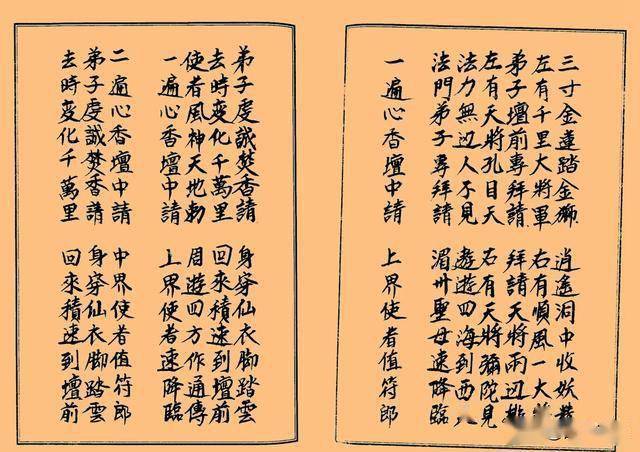 三寸金蓮踏金獅 逍遙洞中收妖
左有千里大將軍 右有順風一大
弟子壇前專拜請 拜請天將兩边排
左有天將孔目天 右有天將彌陀見
法力無边人不見 遨遊四海到西
法門弟子專拜請 湄卅聖母速降臨
一遍心香壇中請 上界使者值符郎
弟子虔誠焚香請 身穿仙衣脚踏雲
去時变化千萬里 回來積速到壇前
使者風神天地勅 周遊四方作通傳
一遍心香壇中請 上界使者速降臨
二遍心香壇中請 中界使者值符郎
弟子虔誠焚香請 身穿仙衣脚踏雲
去時变化千萬里 回來積速到壇前